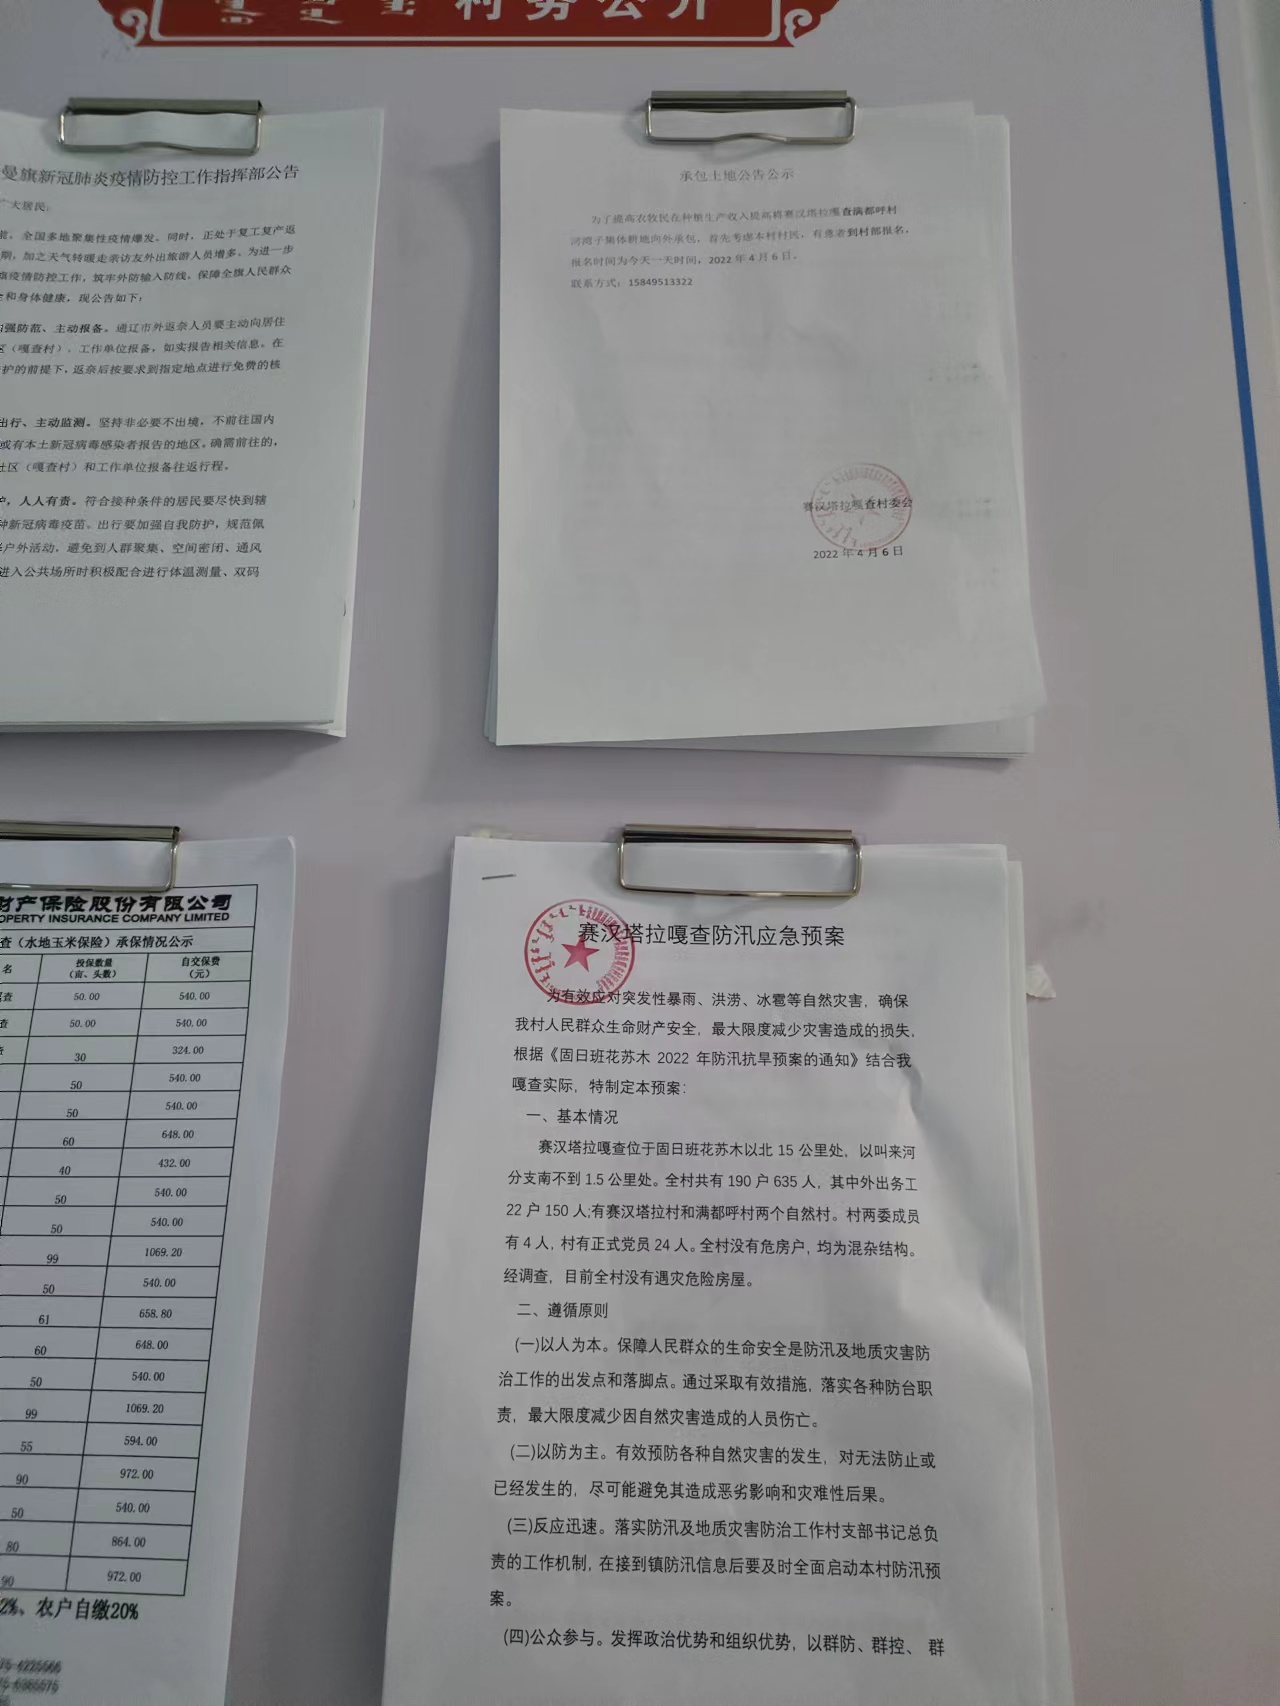 村务公开
曼旗新冠肺炎疫情防控工作指挥部公告
广大居民:
全国多地聚集性疫情爆发。同时,正处于复工复产返
期,加之天气转暖走亲访友外出旅游人员增多。为进一步
疫情防控工作,筑牢外防输入防线,保障全旗人民群众
和身体健康,现公告如下:
强防范、主动报备。通辽市外返奈人员要主动向居住
区(嘎查村)、工作单位报备,如实报告相关信息。在
护的前提下,返奈后按要求到指定地点进行免费的核
出行、主动监测。坚持非必要不出境,不前往国内
或有本土新冠病毒感染者报告的地区。确需前往的,
社区(嘎查村)和工作单位报备往返行程。
人人有责。符合接种条件的居民要尽快到辖
种新冠病毒疫苗。出行要加强自我防护,规范佩
户外活动,避免到人群聚集、空间密闭、通风
进入公共场所时积极配合进行体温测量、双码
承包土地公告公示
为了提高农牧民在种植生产收入提高将赛汉塔拉嘎查满都呼村
河湾子集体耕地向外承包,首先考虑本村村民,有意者到村部报名,
报名时间为今天一天时间,2022年4月6日。
联系方式:15849513322
赛汉塔拉嘎查村委会
2022年4月6日
财产保险股份有限公司
OPERTY INSURANCE COMPANY LIMITED
查(水地玉米保险)承保情况公示
名 投保数量(亩、头数) 自交保费(元)
查 50.00 540.00
查 50.00 540.00
30 324.00
50 540.00
50 540.00
60 648.00
40 432.00
50 540.00
50 540.00
99 1069.20
50 540.00
61 658.80
60 648.00
50 540.00
99 1069.20
55 594.00
90 972.00
50 540.00
80 864.00
90 972.00
2%、农户自缴20%
赛汉塔拉嘎查防汛应急预案
为有效应对突发性暴雨、洪涝、冰雹等自然灾害,确保
我村人民群众生命财产安全,最大限度减少灾害造成的损失,
根据《固日班花苏木 2022 年防汛抗旱预案的通知》结合我
嘎查实际,特制定本预案:
一、基本情况
赛汉塔拉嘎查位于固日班花苏木以北 15 公里处,以叫来河
分支南不到 1.5 公里处。全村共有 190 户 635 人,其中外出务工
22 户 150 人;有赛汉塔拉村和满都呼村两个自然村。村两委成员
有 4 人,村有正式党员 24 人。全村没有危房户,均为混杂结构。
经调查,目前全村没有遇灾危险房屋。
二、遵循原则
(一)以人为本。保障人民群众的生命安全是防汛及地质灾害防
治工作的出发点和落脚点。通过采取有效措施,落实各种防台职
责,最大限度减少因自然灾害造成的人员伤亡。
(二)以防为主。有效预防各种自然灾害的发生,对无法防止或
已经发生的,尽可能避免其造成恶劣影响和灾难性后果。
(三)反应迅速。落实防汛及地质灾害防治工作村支部书记总负
责的工作机制,在接到镇防汛信息后要及时全面启动本村防汛预
案。
(四)公众参与。发挥政治优势和组织优势,以群防、群控、群